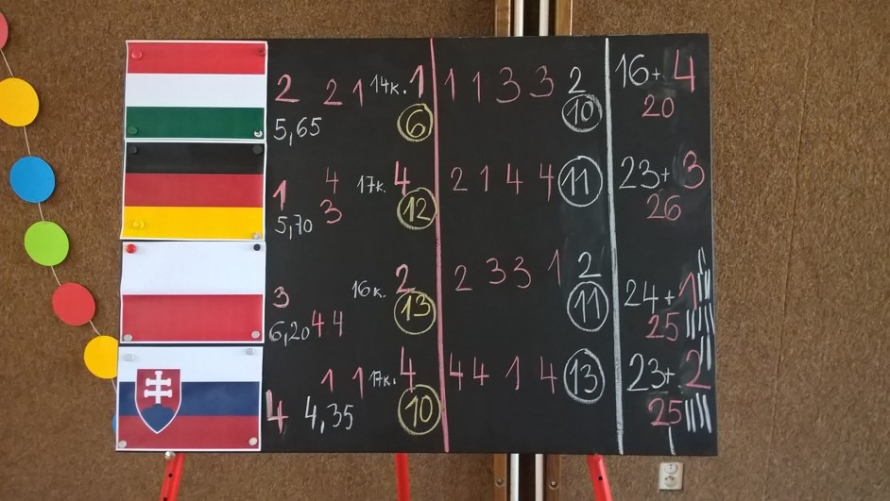 2 2 1 14к. 1 1 1 3 3 2 16+ 4
5,65 6 10 20
1 4 17к. 4 2 1 4 4 11 23+ 3
5,70 3 12 26
3 16к. 2 2 3 3 1 2 24+ 1
6,20 4 4 13 11 25
1 1 17к. 4 4 4 1 4 13 23+ 2
4 4,35 10 25